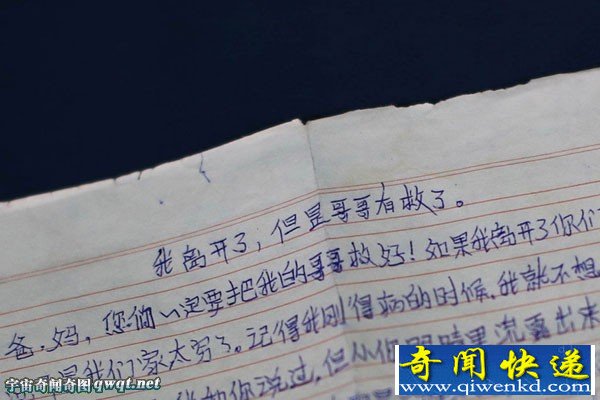 我离开了,但是哥哥有救了。
爸、妈,您俩一定要把我的哥哥救好!如果我离开了你们
是我们家太穷了。记得我刚得病的时候,我就不想
和你说过,但从他眼睛里流露出来
奇闻快递
www.qiwenkd.com
宇宙奇闻奇图qwqt.net